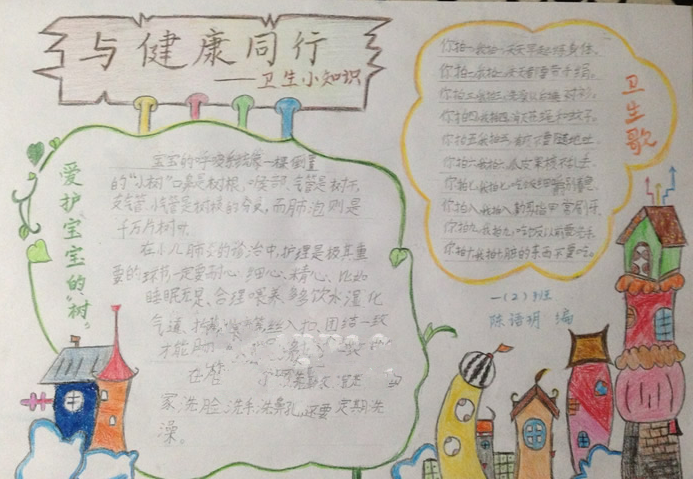 与健康同行
——卫生小知识
爱护宝宝的"树"
宝宝的呼吸系统像一棵倒置
的"小树"口鼻是树根、喉部、气管是树干、
支气管、小气管是树枝的分叉,而肺泡则是
千万片树叶。
在小儿肺炎的诊治中,护理是极其重
要的环节一定要耐心、细心、精心、比如
睡眠充足、合理喂养、多饮水湿化
气道、拍背、等丝入扣、团结一致
才能
家洗脸、洗手、洗鼻孔,还要定期洗
澡。
卫生歌
你拍一我拍一天天早起练身体。
你拍二我拍二天天要带手绢。
你拍三我拍三洗澡以后换衬衫。
你拍四我拍四消灭苍蝇和蚊子。
你拍五我拍五有痰不要随地吐。
你拍六我拍六瓜皮果核不乱丢。
你拍七我拍七吃饭细嚼别着急。
你拍八我拍八勤剪指甲常刷牙。
你拍九我拍九吃饭以前要洗手。
你拍十我拍十脏的东西不要吃。
一(2)班
陈语玥 编